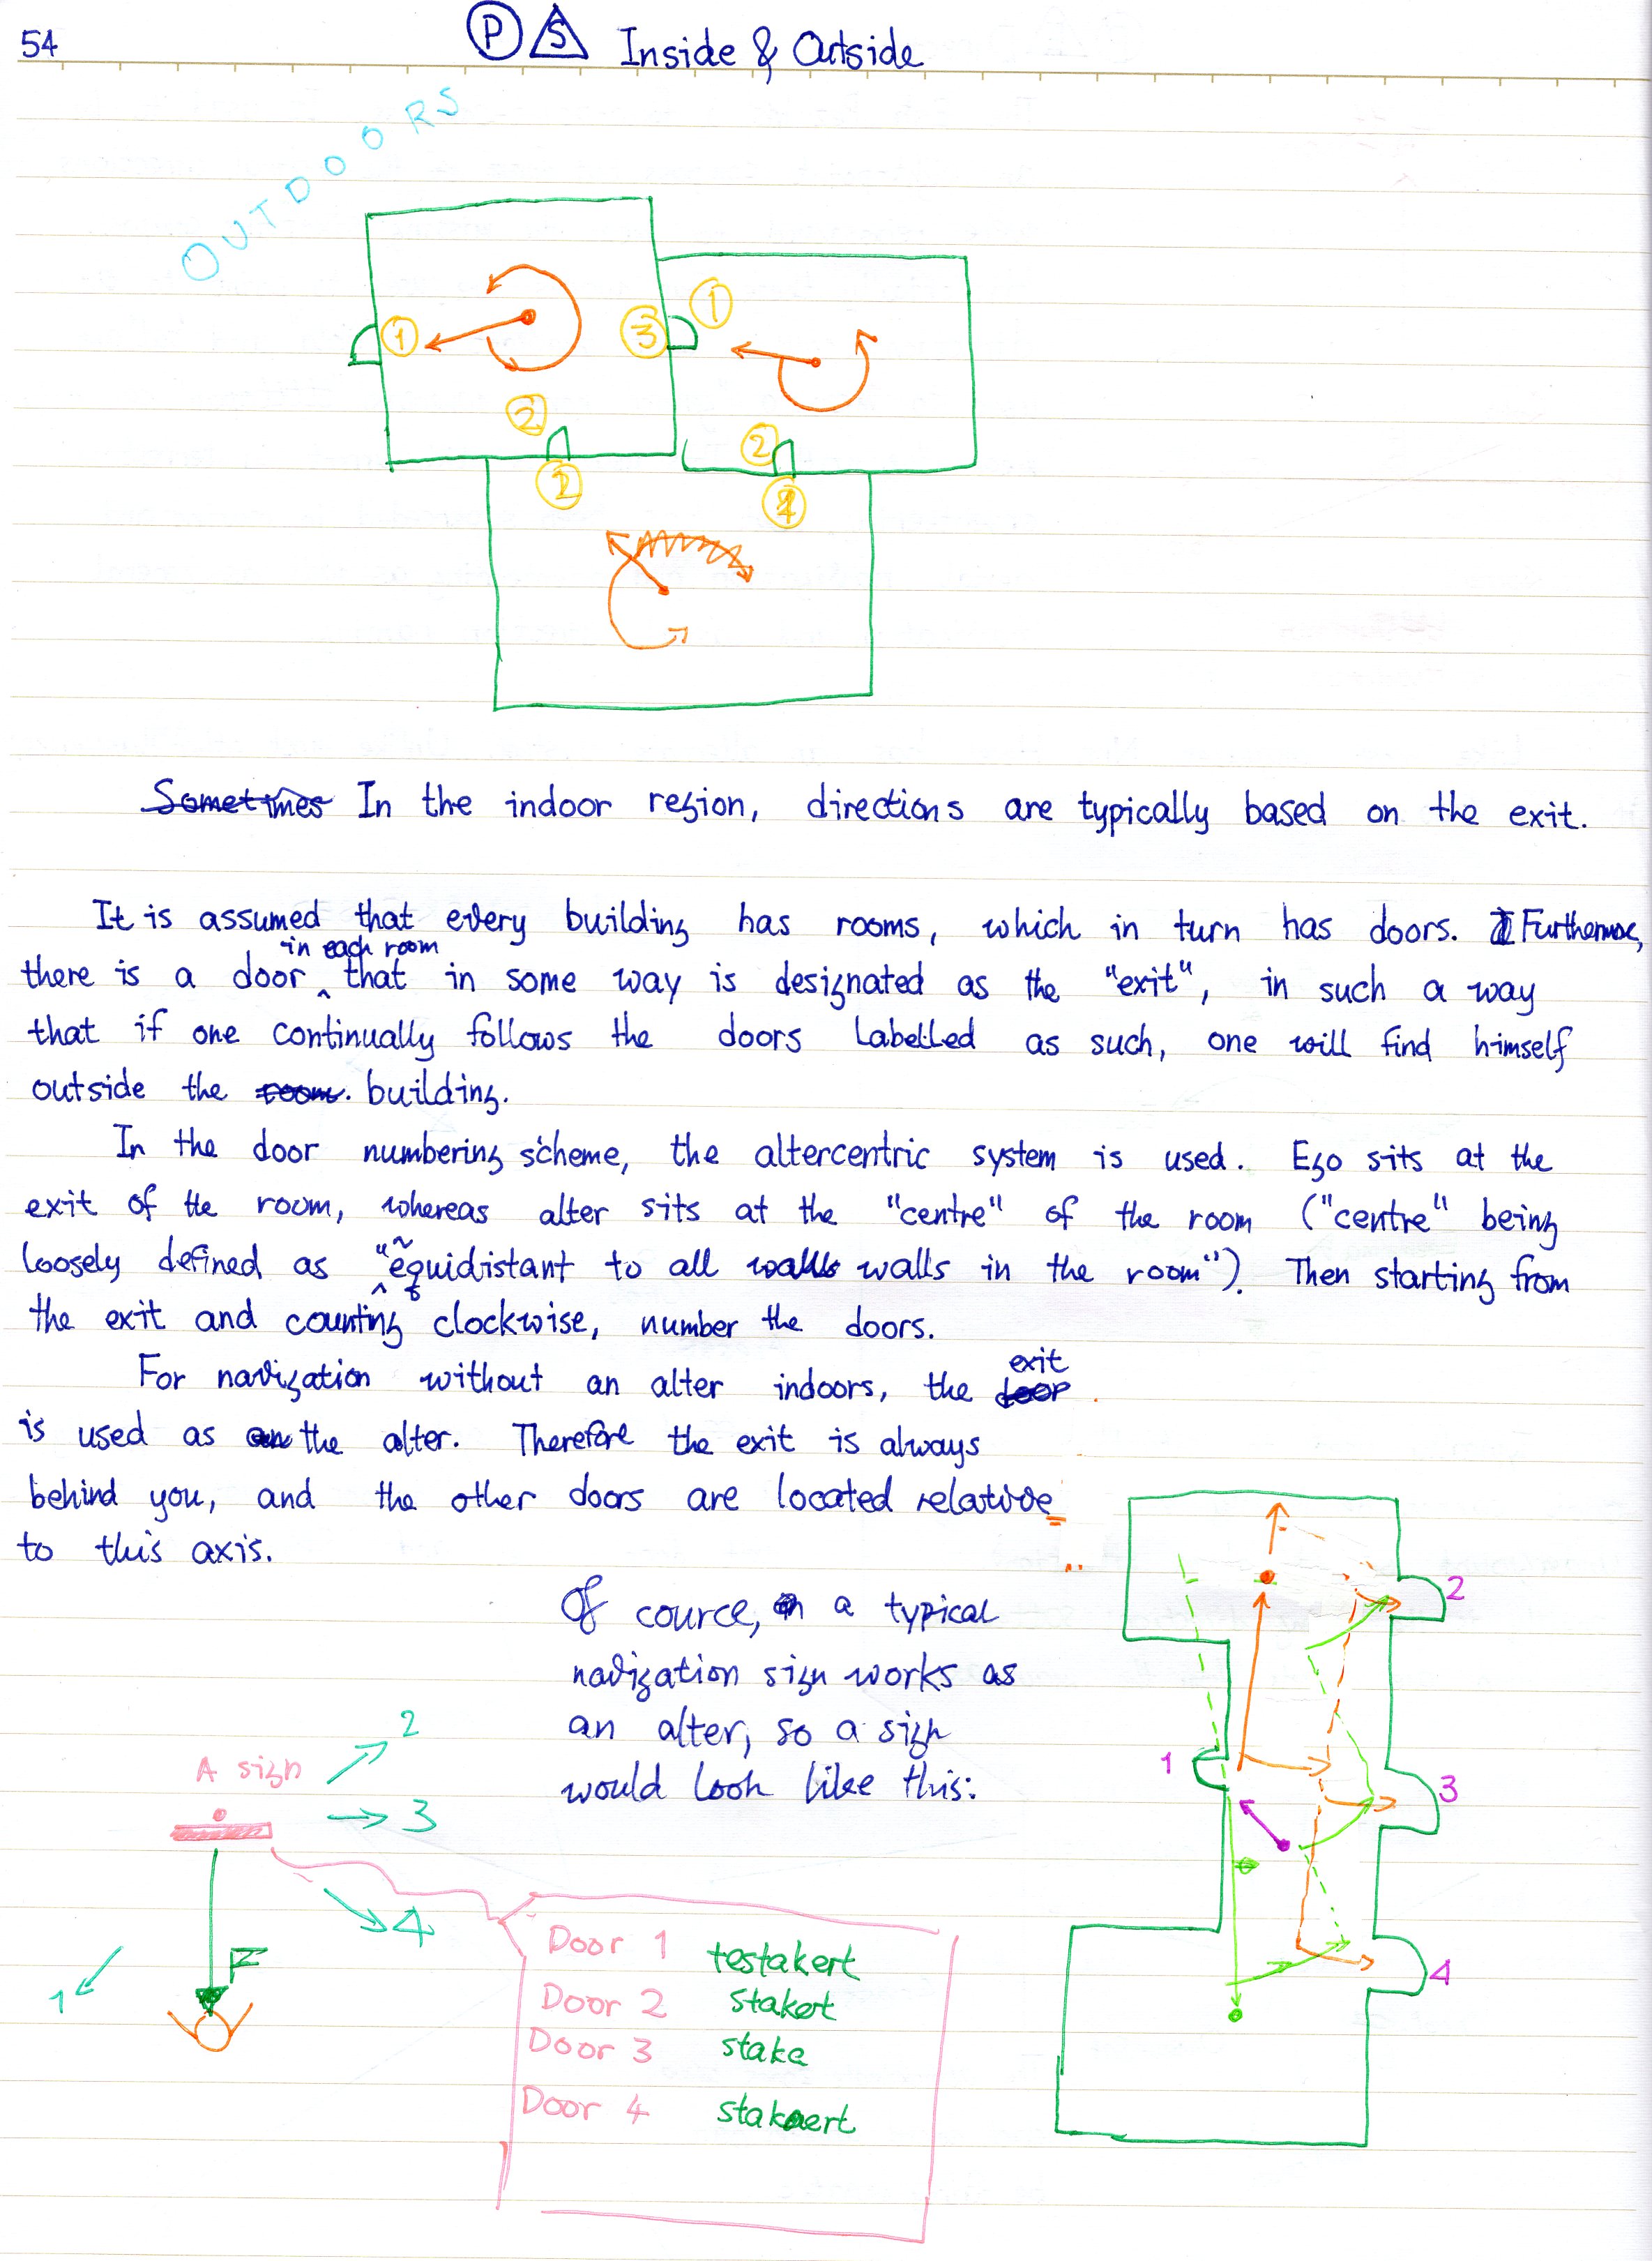 54
P S Inside & Outside
OUTDOORS
1 3 1
2 2
Sometimes In the indoor region, directions are typically based on the exit.
It is assumed that every building has rooms, which in turn has doors. Furthermore,
in each room
there is a door ‸ that in some way is designated as the "exit", in such a way
that if one continually follows the doors labelled as such, one will find himself
outside the room. building.
In the door numbering scheme, the altercentric system is used. Ego sits at the
exit of the room, whereas alter sits at the "centre" of the room ("centre" being
loosely defined as "~equidistant to all walls walls in the room"). Then starting from
the exit and counting clockwise, number the doors.
For navigation without an alter indoors, the door exit
is used as an the alter. Therefore the exit is always
behind you, and the other doors are located relative
to this axis.
Of cource, a typical
navigation sign works as
an alter, so a sign
would look like this:
A sign
2
3
4
1
F
Door 1 testakert
Door 2 stakert
Door 3 stake
Door 4 stakaert
2
1
3
4